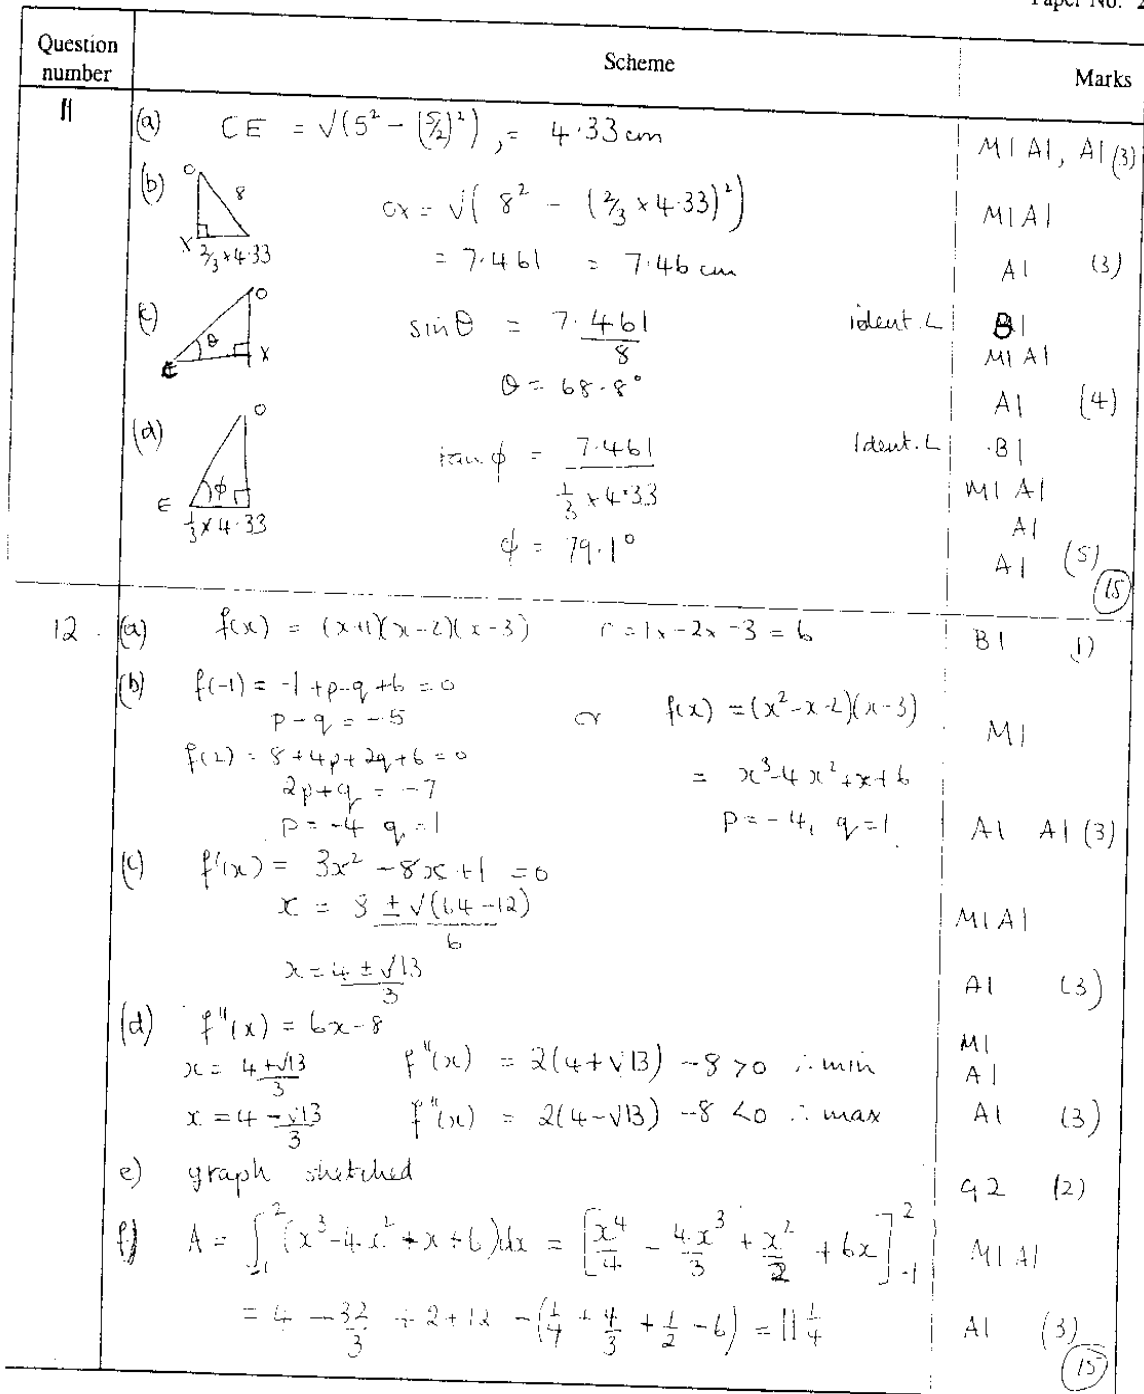 Paper No. 2
Question number
Scheme
Marks
11
(a) CE = √(5² − (5/2)²) , = 4.33 cm M1 A1, A1 (3)
(b) O 8 X 2/3 × 4.33
OX = √( 8² − (2/3 × 4.33)²) M1 A1
= 7.461 = 7.46 cm A1 (3)
(c) O θ X
sin θ = 7.461/8 ident. L B1
M1 A1
θ = 68.8° A1 (4)
(d) O φ E 1/3 × 4.33
tan φ = 7.461/(1/3 × 4.33) Ident. L B1
M1 A1
A1
φ = 79.1° A1 (5)
(15)
12. (a) f(x) = (x+1)(x−2)(x−3) r = 1x −2x −3 = 6 B1 1)
(b) f(-1) = -1 + p - q + 6 = 0
p − q = −5 or f(x) = (x²−x−2)(x−3) M1
f(2) = 8 + 4p + 2q + 6 = 0
= x³−4x²+x+6
2p+q = −7
p = −4 q = 1 p = −4, q = 1 A1 A1 (3)
(c) f'(x) = 3x² − 8x + 1 = 0
x = 8 ± √(64−12)/6 M1 A1
x = 4 ± √13/3 A1 (3)
(d) f"(x) = 6x−8 M1
x = 4+√13/3 f"(x) = 2(4+√13) −8 >0 ∴ min A1
x = 4−√13/3 f"(x) = 2(4−√13) −8 <0 ∴ max A1 (3)
e) graph sketched G2 (2)
f) A = ∫₋₁² (x³−4x²+x+6)dx = [x⁴/4 − 4x³/3 + x²/2 + 6x]₋₁² M1 A1
= 4 − 32/3 + 2 + 12 − (1/4 + 4/3 + 1/2 − 6) = 11 1/4 A1 (3)
(15)